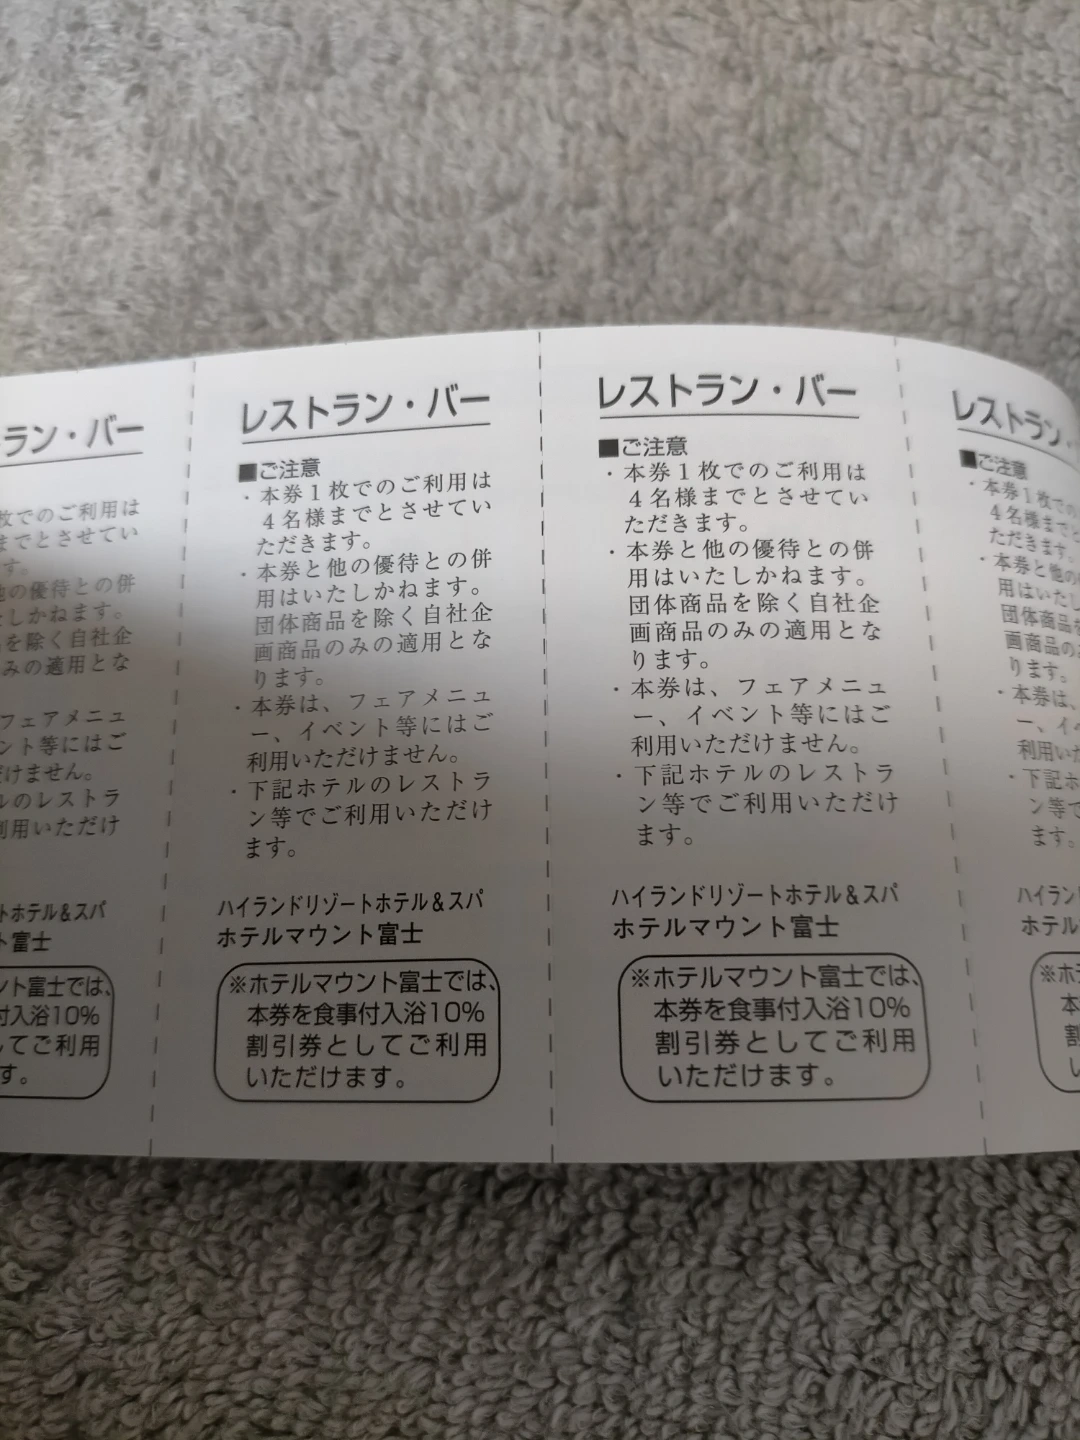 ラン・バー
枚でのご利用は
までとさせてい
す。
他の優待との併
たしかねます。
を除く自社企
みの適用とな
フェアメニュ
ント等にはご
だけません。
ルのレストラ
利用いただけ
トホテル＆スパ
ト富士
ント富士では、
付入浴10％
してご利用
す。
レストラン・バー
■ご注意
・本券１枚でのご利用は
４名様までとさせてい
ただきます。
・本券と他の優待との併
用はいたしかねます。
団体商品を除く自社企
画商品のみの適用とな
ります。
・本券は、フェアメニュ
ー、イベント等にはご
利用いただけません。
・下記ホテルのレストラ
ン等でご利用いただけ
ます。
ハイランドリゾートホテル＆スパ
ホテルマウント富士
※ホテルマウント富士では、
本券を食事付入浴10％
割引券としてご利用
いただけます。
レストラン・バー
■ご注意
・本券１枚でのご利用は
４名様までとさせてい
ただきます。
・本券と他の優待との併
用はいたしかねます。
団体商品を除く自社企
画商品のみの適用とな
ります。
・本券は、フェアメニュ
ー、イベント等にはご
利用いただけません。
・下記ホテルのレストラ
ン等でご利用いただけ
ます。
ハイランドリゾートホテル＆スパ
ホテルマウント富士
※ホテルマウント富士では、
本券を食事付入浴10％
割引券としてご利用
いただけます。
レストラン・
■ご注意
・本券１枚での
４名様までと
ただきます。
・本券と他の
用はいたし
団体商品を
画商品のみ
ります。
・本券は、
ー、イベ
利用いた
・下記ホ
ン等で
ます。
ハイラン
ホテル
※ホテ
本
割
い